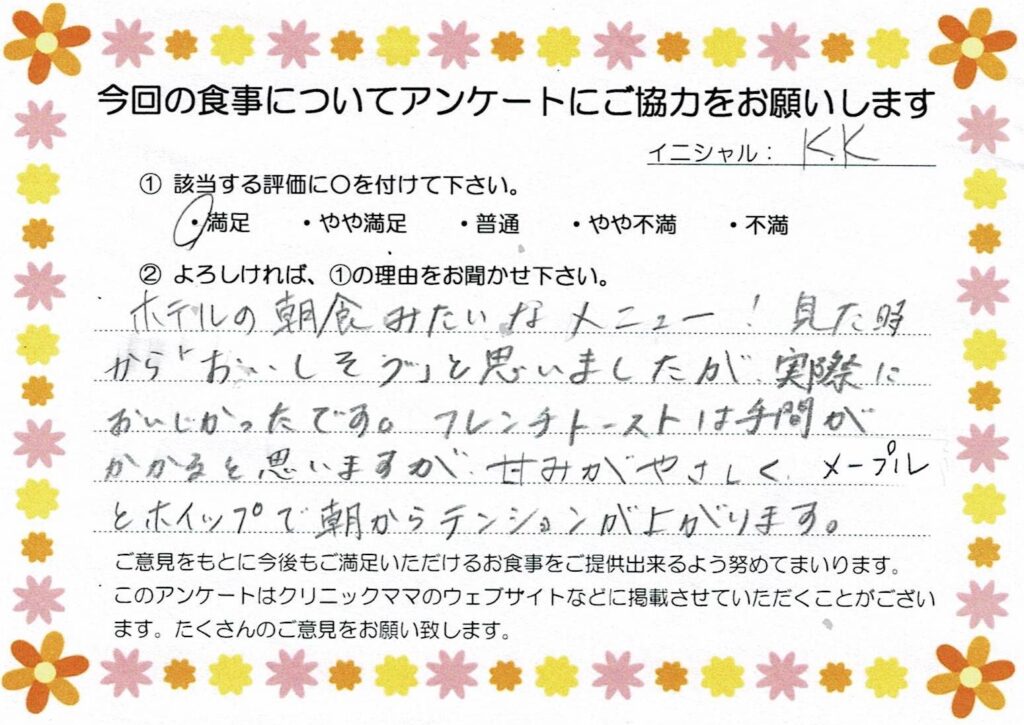 今回の食事についてアンケートにご協力をお願いします
イニシャル： K.K
① 該当する評価に〇を付けて下さい。
・満足 ・やや満足 ・普通 ・やや不満 ・不満
② よろしければ、①の理由をお聞かせ下さい。
ホテルの朝食みたいなメニュー！見た時
から「おいしそう」と思いましたが、実際に
おいしかったです。フレンチトーストは手間が
かかると思いますが、甘みがやさしく、メープル
とホイップで朝からテンションが上がります。
ご意見をもとに今後もご満足いただけるお食事をご提供出来るよう努めてまいります。
このアンケートはクリニックママのウェブサイトなどに掲載させていただくことがござい
ます。たくさんのご意見をお願い致します。